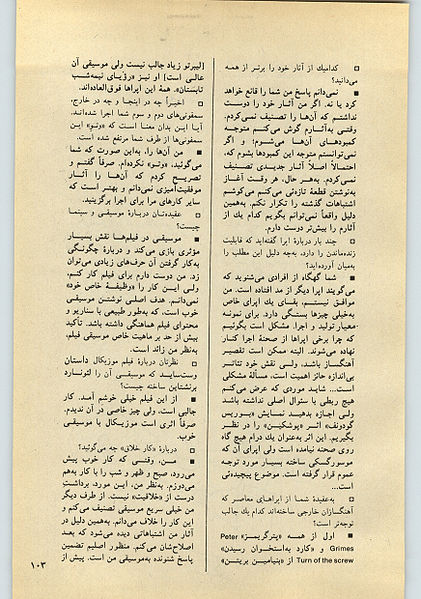 □ کدامیك از آثار خود را برتر از همه
می‌دانید؟
■ نمی‌دانم پاسخ من شما را قانع خواهد
کرد یا نه. اگر من آثار خود را دوست
نداشتم که آن‌ها را تصنیف نمی‌کردم.
وقتی به‌آثارم گوش می‌کنم متوجه
کمبودهای آن‌ها می‌شوم؛ و اگر
نمی‌توانستم متوجه این کمبودها بشوم، که
احتمالاً اصلاً آثار جدیدی تصنیف
نمی‌کردم. به‌هر حال، هر وقت آغاز
به‌نوشتن قطعهٔ تازه‌ئی می‌کنم می‌کوشم
اشتباهات گذشته را تکرار نکم. به‌همین
دلیل واقعاً نمی‌توانم بگویم کدام یك از
آثارم را بیش‌تر دوست دارم.
□ چند بار دربارهٔ اپرا گفته‌اید که قابلیت
زنده‌ماندن را دارد. به‌چه دلیل این مطلب را
به‌میان آورده‌اید؟
■ شما گهگاه از افرادی می‌شنوید که
می‌گویند اپرا دیگر از مد افتاده است. من
موافق نیستم، بقای یك اپرای خاص
به‌خیلی چیزها بستگی دارد. برای نمونه
معیار تولید و اجرا. مشکل است بگوئیم
که چرا برخی اپراها از صحنهٔ اجرا کنار
نهاده می‌شوند. البته ممکن است تقصیر
آهنگساز باشد. ولی نقش خود تئاتر
بی‌اندازه حائز اهمیت است، مسألهٔ مشکلی
است... شاید موردی که عرض می‌کنم
هیچ ربطی با سئوال اصلی نداشته باشد
ولی اجازه بدهید نمایش «بوریس
گودونف» اثر «پوشکین» را در نظر
بگیریم. این اثر به‌عنوان یك درام هیچ گاه
روی صحنه نیامده است ولی اپرای آن که
موسورگسکی ساخته بسیار مورد توجه
عموم قرار گرفته است. موضوع پیچیده‌ئی
است...
□ به‌عقیدهٔ شما از اپراهای معاصر که
آهنگسازان خارجی ساخته‌اند کدام یك جالب
توجه‌تر است؟
■ اول از همه «پیترگریمز» Peter
Grimes و «کارد به‌استخوان رسیدن»
Turn of the screw از «بنیامین بریتن»
[لیبرتو زیاد جالب نیست ولی موسیقی آن
عالی است] او نیز «رؤیای نیمه‌شب
تابستان». همهٔ این اپراها فوق‌العاده‌اند.
□ اخیراً چه در اینجا و چه در خارج،
سمفونی‌های دوم و سوم شما اجرا شده‌انـد.
آیـا این بـدان معنـا است که «وتـو» این
سمفونی‌ها از طرف شما مرتفع شده است.
■ من آن‌ها را، به‌این صورت که شما
می‌گوئید، «وتـو» نکرده‌ام. صرفاً گفتم و
تصریح کردم که آن‌ها را آثار
موفقیت‌آمیزی نمی‌دانم و بهتر است که
سایر کارهای مرا برای اجرا برگزینید.
□ عقیده‌تان دربارهٔ موسیقی و سینما
چیست؟
■ موسیقی در فیلم‌ها نقش بسیار
مؤثری بازی می‌کند و دربارهٔ چگونگی
به‌کار گرفتن آن حرف‌های زیادی می‌توان
زد. من دوست دارم برای فیلم کار کنم،
ولی این کار را «وظیفهٔ خاص خود»
نمی‌دانم. هدف اصلی نوشتن موسیقی
خوب است، که به‌طور طبیعی با سناریو و
محتوای فیلم هماهنگی داشته باشد. تأکید
بیش از حد بر ماهیت خاص موسیقی فیلم،
به‌نظر من زائد است.
□ نظرتان دربارهٔ فیلم موزیکال داستان
وست‌ساید که موسیقی آن را لئونارد
برنشتاین ساخته چیست؟
■ از این فیلم خیلی خوشم آمد. کار
جالبی است، ولی چیز خاصی در آن ندیدم.
صرفاً اثری است موزیکال با موسیقی
خوب.
□ دربارهٔ «کار خلاق» چه می‌گوئید؟
■ من، وقتی که کار خوب پیش
می‌رود، صبح و ظهر و شب را با کار به‌هم
می‌دوزم. به‌نظر من، این مورد، برداشتِ
درست از «خلاقیت» نیست. از طرف دیگر
من خیلی سریع موسیقی تصنیف می‌کنم و
این کار را خلاف می‌دانم. به‌همین دلیل در
آثار من اشتباهاتی دیده می‌شود که بعد
اصلاح‌شان می‌کنم. منظور اصلیم تضمین
پاسخ شنونده به‌موسیقی من است. پیش از
۱۰۳